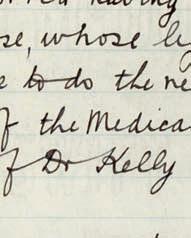 having
se, whose li
to do the ne
f the Medica
f Dr Kelly